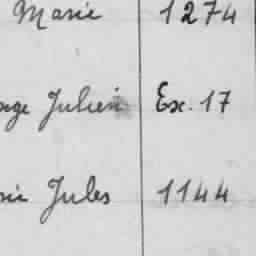 Marie 1274
Julien Ex. 17
Jules 1144